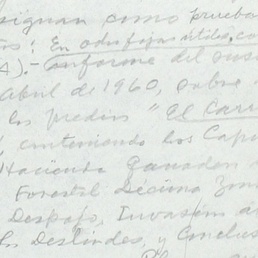 signan como prueba
tos: En ocho fojas útiles, co
A).- Informe del
Abril de 1960, sobre
los predios "El Carr
, conteniendo los Capi
Hacienda Ganadera
Forestal Décima Zona
Despojo, Invasión de
los Deslindes, y Conclus